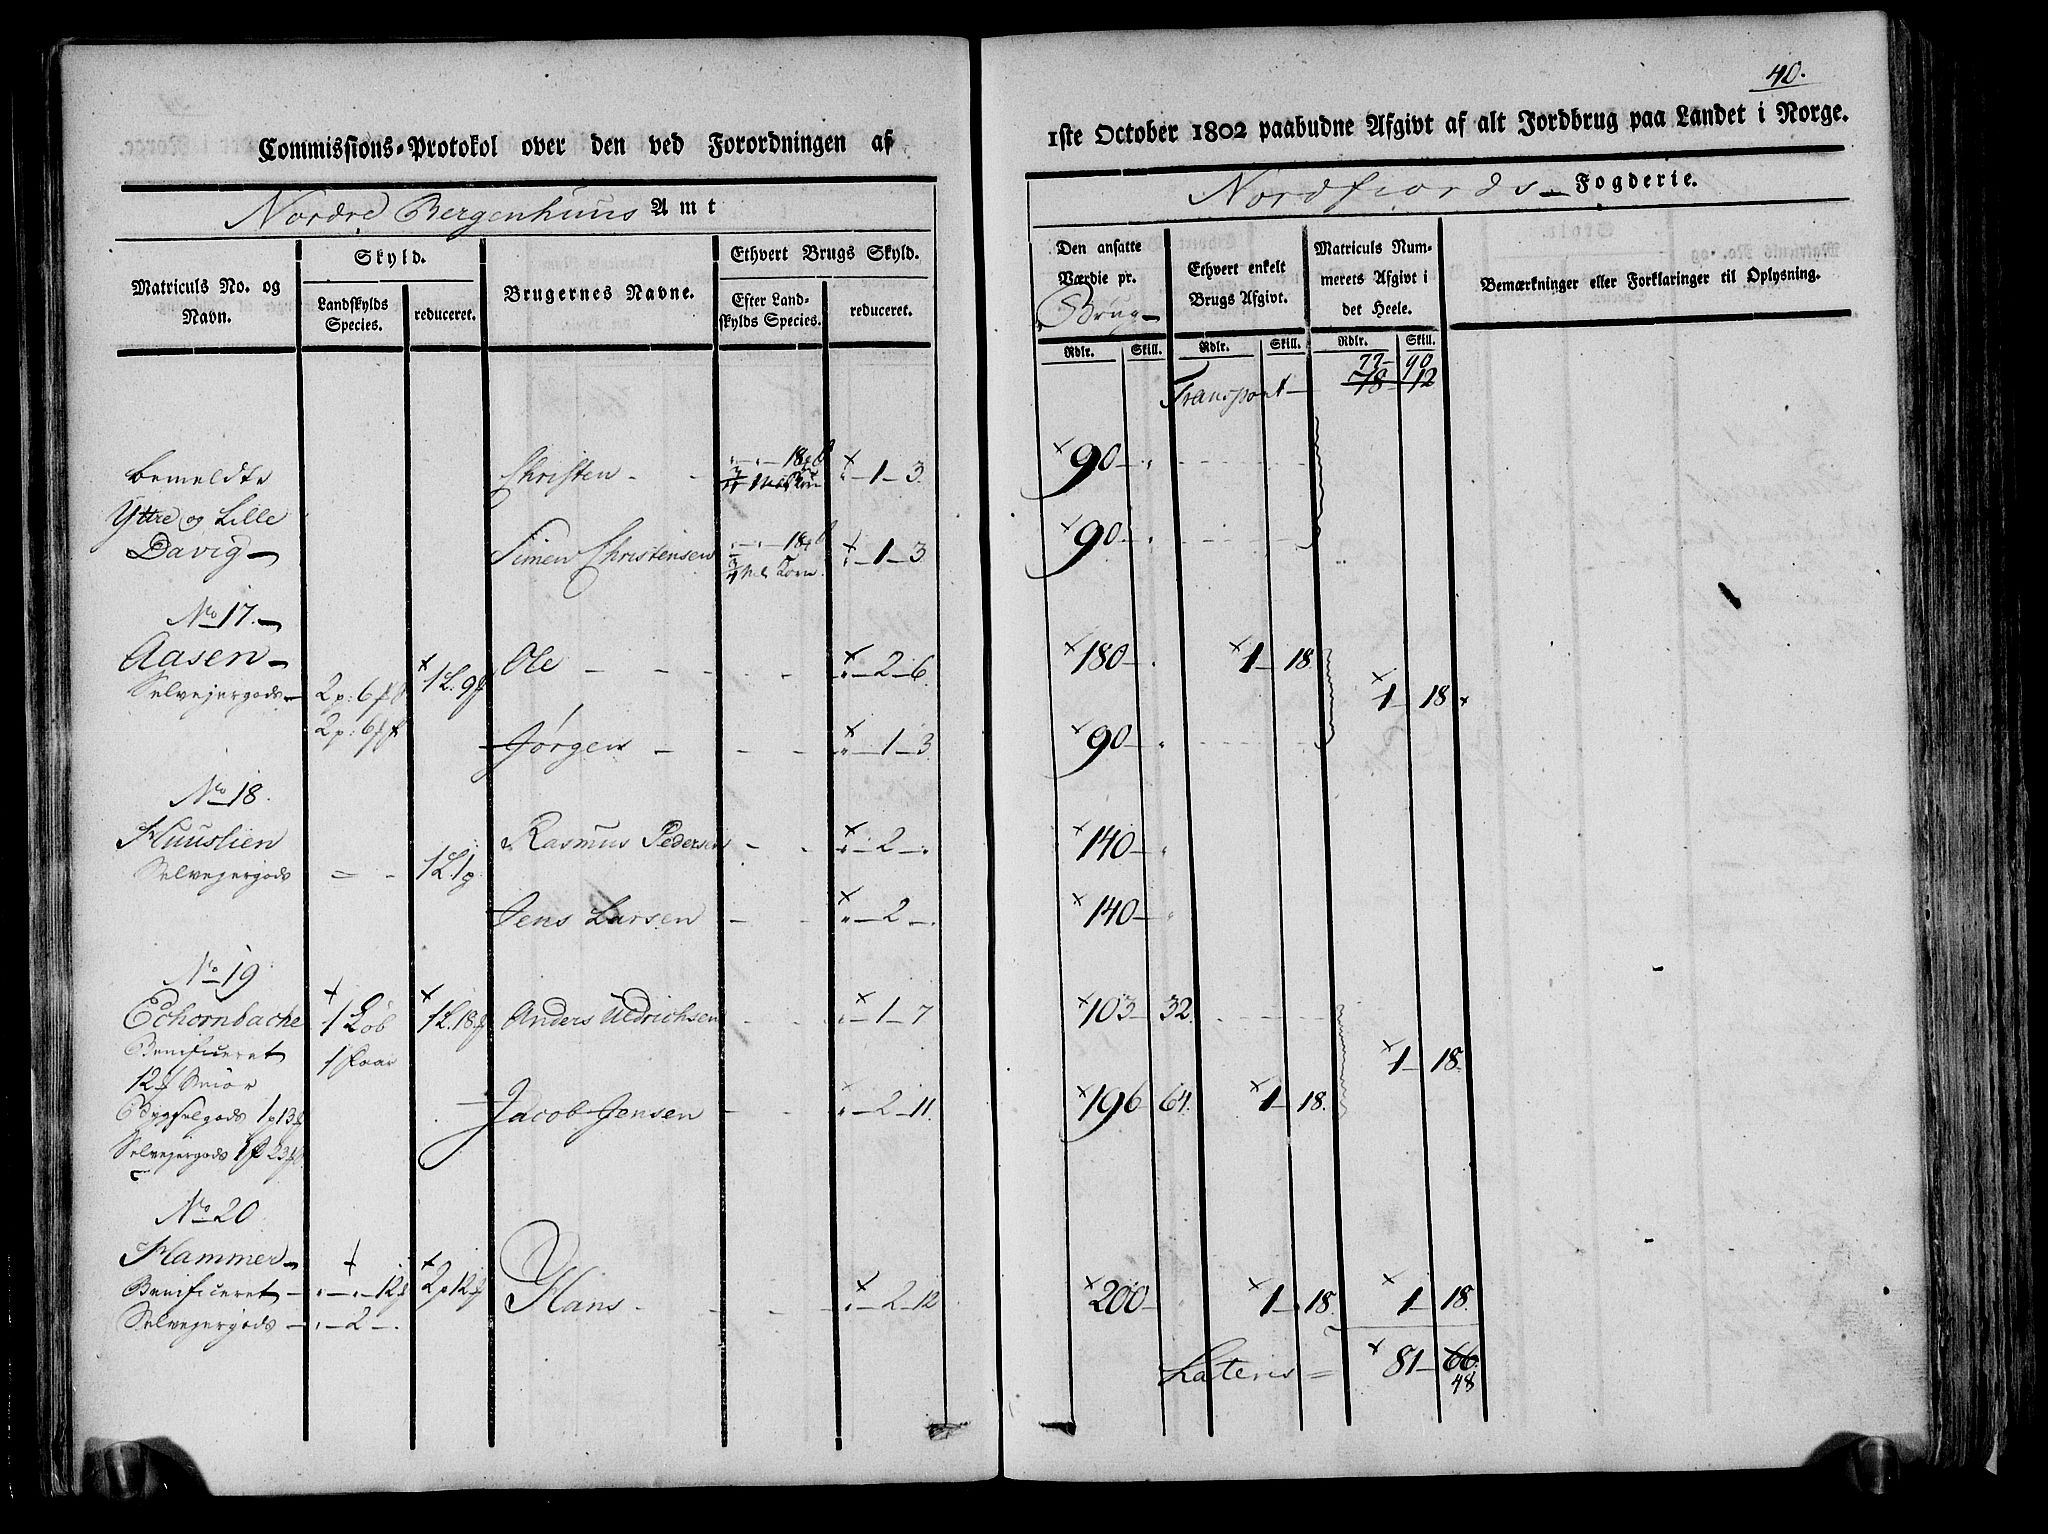 40.
Commissions-Protokol over den ved Forordningen af
1ste October 1802 paabudne Afgivt af alt Jordbrug paa Landet i Norge.
Nordre Bergenhuus Amt
Nordfiords Fogderie.
Matriculs No. og Navn.
Skyld.
Landskylds Species.
reduceret.
Brugernes Navne.
Ethvert Brugs Skyld.
Efter Landskylds Species.
reduceret.
Den ansatte Værdie pr. Brug
Ethvert enkelt Brugs Afgivt.
Matriculs Nummerets Afgivt i det Heele.
Bemærkninger eller Forklaringer til Oplysning.
Rdlr. Skill. Rdlr. Skill. Rdlr. Skill.
77 - 90
Transport - 78 - 12
bemeldte Christen - - 1 - 3 90 -
Yttre og Lille
Davig - Simen Christensen - 1 - 3 90 -
No 17. -
Aasen - 1 L. 9 Ole - - - - 2 - 6 180 - 1 - 18
Selvejergods - 2 p: 6 1 - 18
2 p: 6 Jørgen - - - 1 - 3 90 -
No 18.
Huuslien Rasmus Pedersen - - 2 - 140 -
Selvejergods = - 1 L. 1
Jens Larsen - - 2 - 140 -
No 19
Echornbache 1 Løb 1 L. 18 Anders Uldrichsen - - 1 - 7 103 - 32
Benificeret 1 Faar 1 - 18
12 Smør
Bygselgods 1 p 13 Jacob Jensen - - 2 - 11 196 - 64 1 - 18
Selvejergods 1 p 23
No 20
Hammer -
Benificeret - 12 2 p 12 Hans - - - 2 - 12 200 - 1 - 18 1 - 18
Selvejergods - 2 -
Lateris = 81 - 66
48